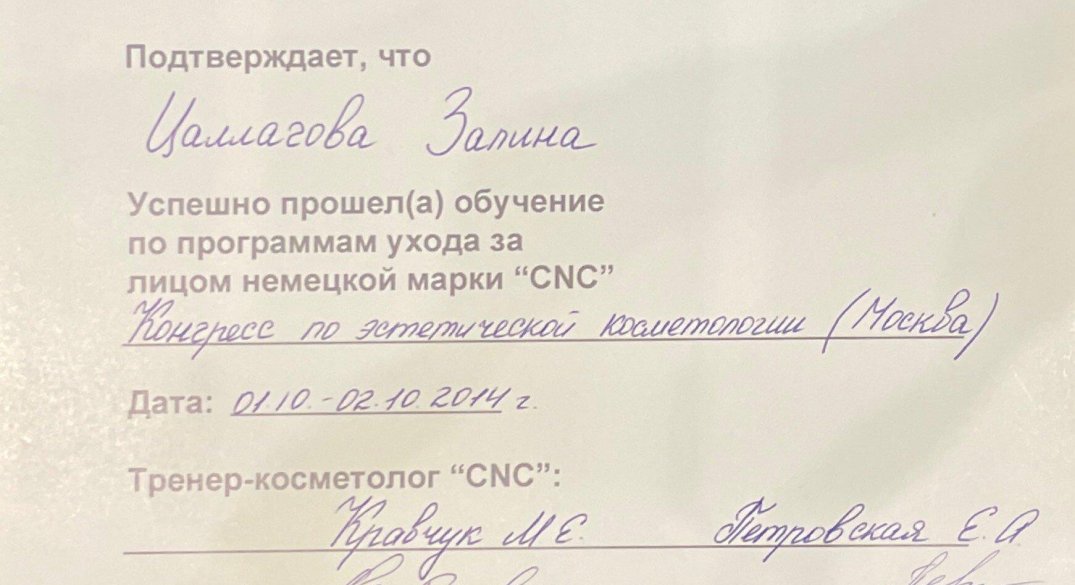 Подтверждает, что
Цаллагова Залина
Успешно прошел(а) обучение
по программам ухода за
лицом немецкой марки “CNC”
Конгресс по эстетической косметологии (Москва)
Дата: 01.10.-02.10.2014 г.
Тренер-косметолог “CNC”:
Кравчук М.Е. Петровская Е.А.